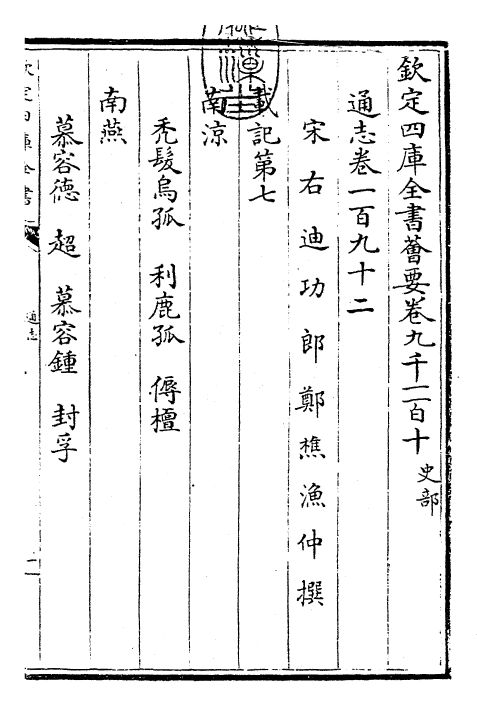 欽定四庫全書薈要卷九千二百十 史部
通志卷一百九十二
宋右迪功郎鄭樵漁仲撰
載記第七
南涼
秃髮烏孤 利鹿孤 傉檀
南燕
慕容德 超 慕容鍾 封孚
欽定四庫全書
通志